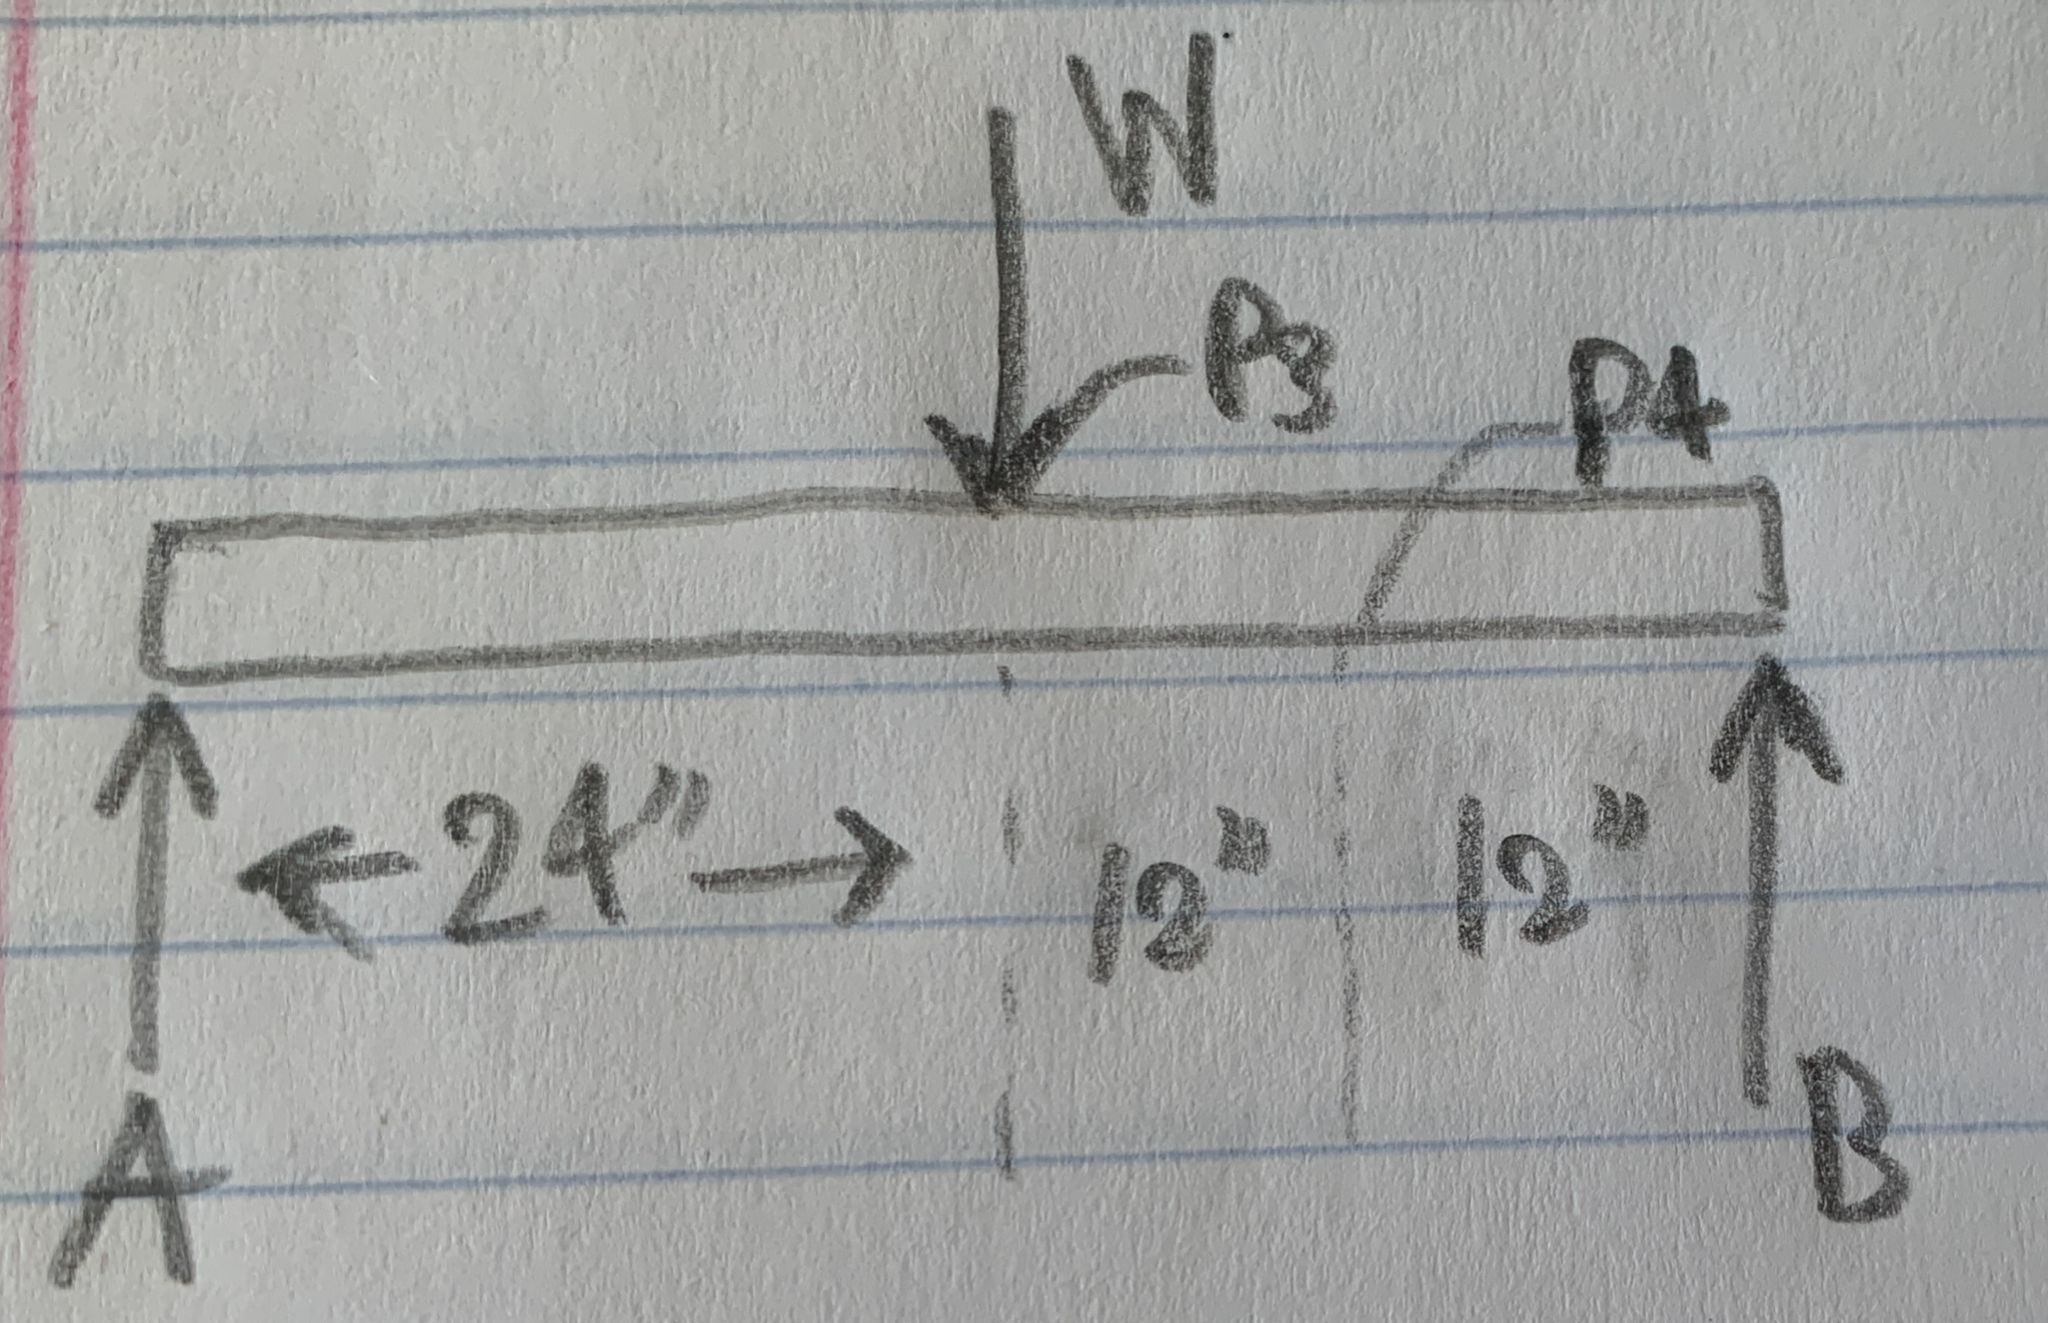 W
P3
P4
24" 12" 12"
A B